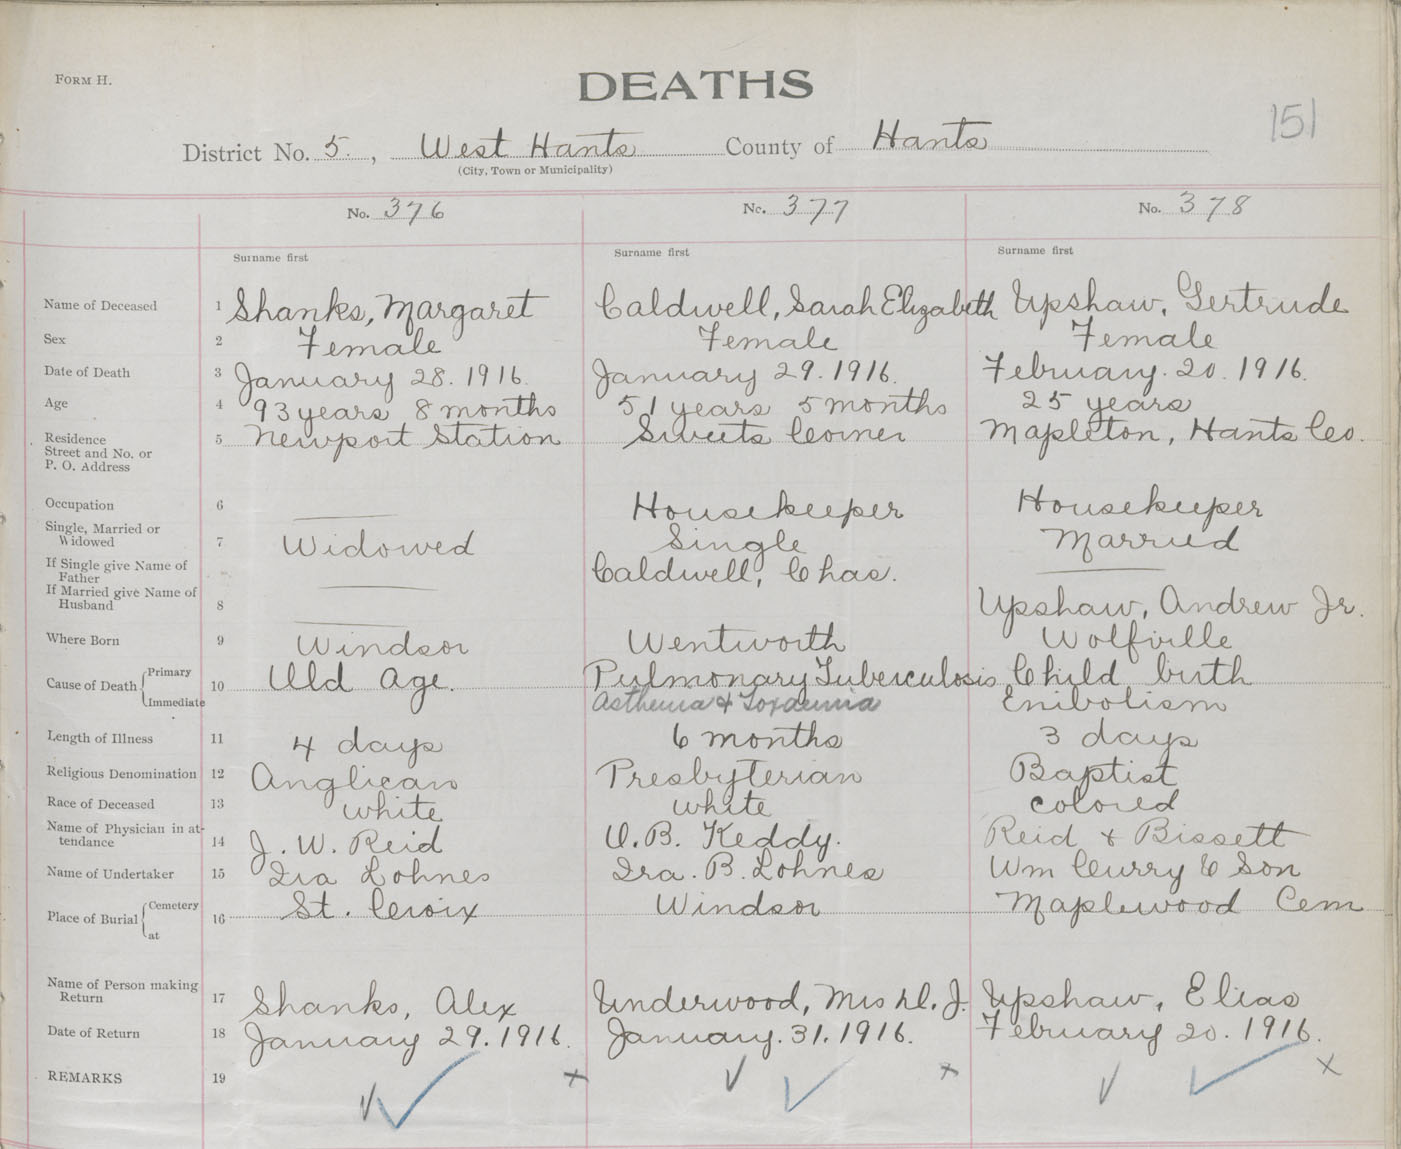 FORM H.
DEATHS
151
District No. 5. , West Hants County of Hants
(City, Town or Municipality)
No. 376 No. 377 No. 378
Surname first Surname first Surname first
Name of Deceased 1 Shanks, Margaret Caldwell, Sarah Elizabeth Upshaw, Gertrude
Sex 2 Female Female Female
Date of Death 3 January 28. 1916. January 29. 1916. February. 20. 1916.
Age 4 93 years 8 months 51 years 5 months 25 years
Residence Street and No. or P. O. Address 5 Newport Station Sweets Corner Mapleton, Hants Co.
Occupation 6 Housekeeper Housekeeper
Single, Married or Widowed 7 Widowed Single Married
If Single give Name of Father Caldwell, Chas.
If Married give Name of Husband 8 Upshaw, Andrew Jr.
Where Born 9 Windsor Wentworth Wolfville
Cause of Death Primary 10 Old Age. Pulmonary Tuberculosis Child birth
Immediate Asthenia & Toxaemia Enibolism
Length of Illness 11 4 days 6 months 3 days
Religious Denomination 12 Anglican Presbyterian Baptist
Race of Deceased 13 white white colored
Name of Physician in attendance 14 J. W. Reid O. B. Keddy. Reid & Bissett
Name of Undertaker 15 Ira Lohnes Ira. B. Lohnes Wm Curry & Son
Place of Burial Cemetery at 16 St. Croix Windsor Maplewood Cem
Name of Person making Return 17 Shanks, Alex Underwood, Mrs J. Upshaw, Elias
Date of Return 18 January 29. 1916. January. 31. 1916. February 20. 1916.
REMARKS 19 x x x